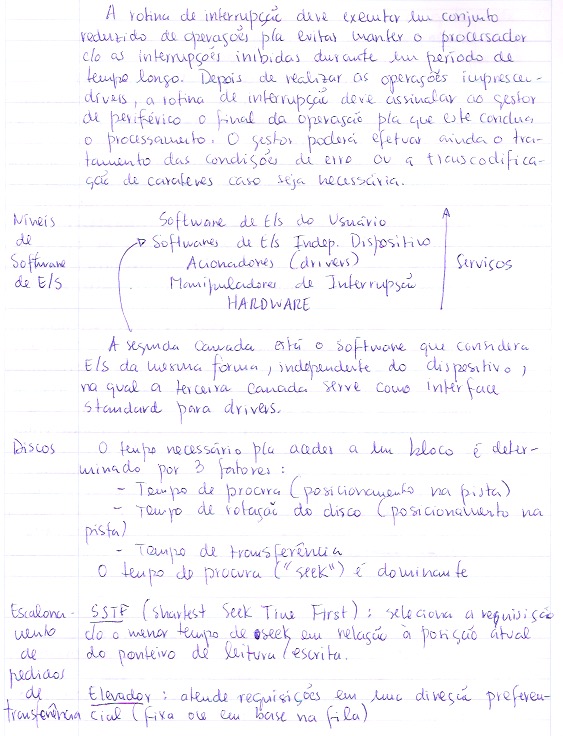 A rotina de interrupção deve executar um conjunto
reduzido de operações p/a evitar manter o processador
c/o as interrupções inibidas durante um período de
tempo longo. Depois de realizar as operações imprescin-
díveis, a rotina de interrupção deve assinalar ao gestor
de periférico o final da operação p/a que este conclua
o processamento. O gestor poderá efetuar ainda o tra-
tamento das condições de erro ou a transcodifica-
ção de carateres caso seja necessária.
Níveis de Software de E/S
Software de E/S do Usuário
Softwares de E/S Indep. Dispositivo
Acionadores (drivers)
Manipuladores de Interrupção
HARDWARE
Serviços
A segunda camada está o software que considera
E/S da mesma forma, independente do dispositivo,
na qual a terceira camada serve como interface
standard para drivers.
Discos
O tempo necessário p/a aceder a um bloco é deter-
minado por 3 fatores:
- Tempo de procura (posicionamento na pista)
- Tempo de rotação do disco (posicionamento na
pista)
- Tempo de transferência
O tempo de procura ("seek") é dominante
Escalona-
mento
de
pedidos
de
transferência
SSTF (Shortest Seek Time First): seleciona a requisição
c/o o menor tempo de seek em relação à posição atual
do ponteiro de leitura/escrita.
Elevador: atende requisições em uma direção preferen-
cial (fixa ou em base na fila)